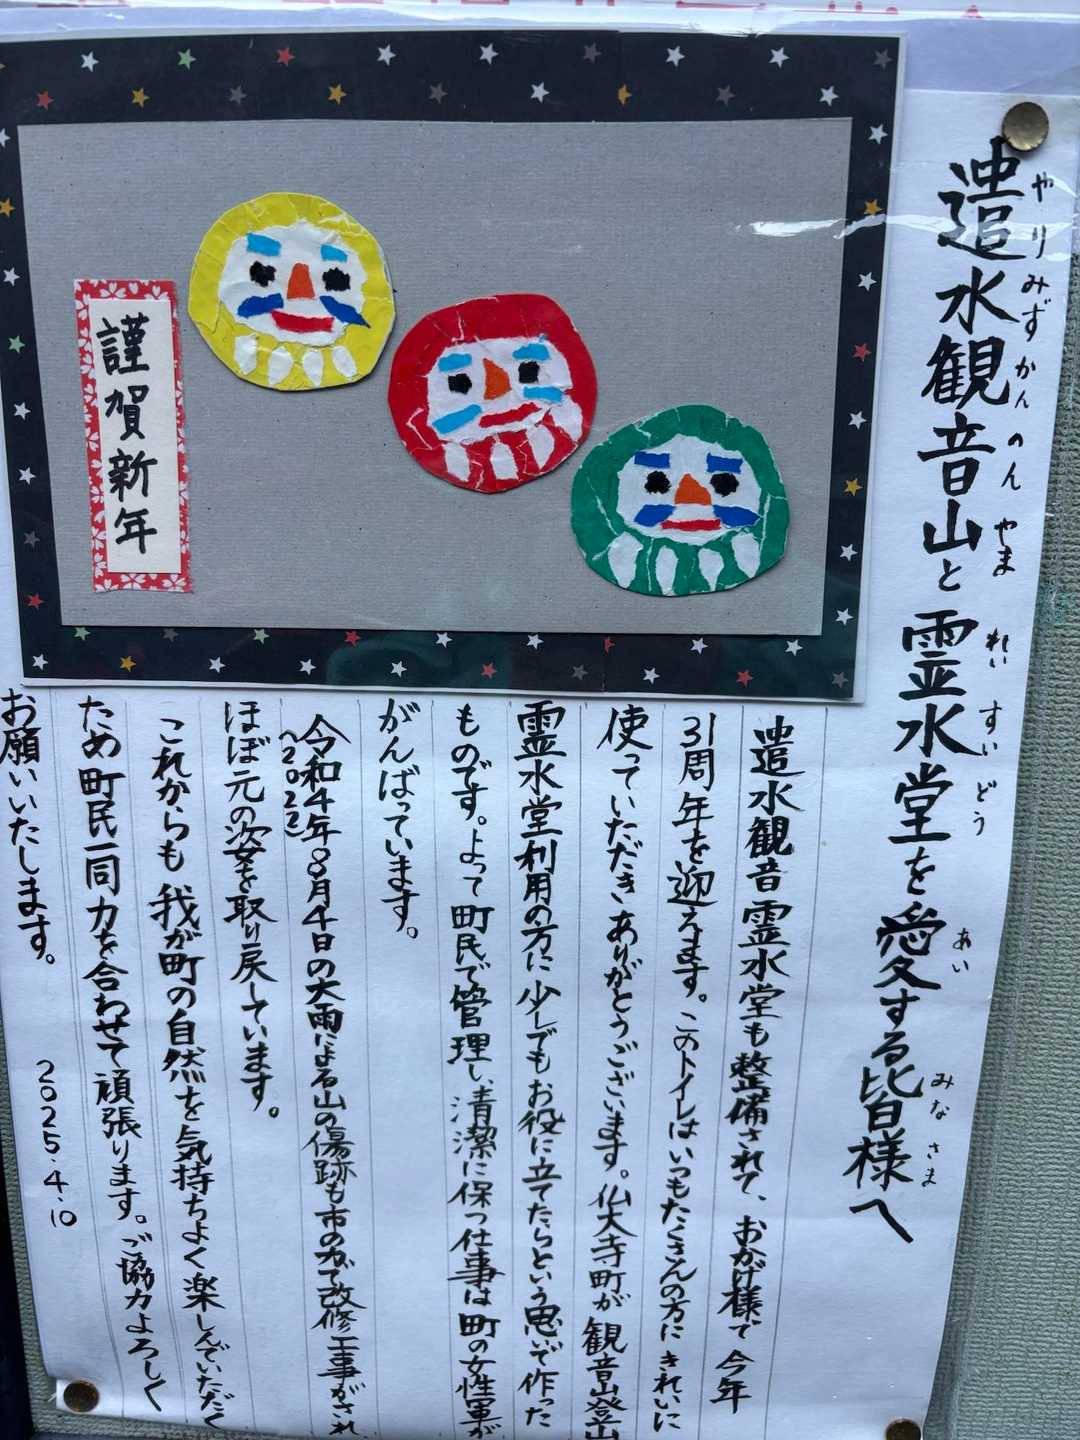 遣水観音山と霊水堂を愛する皆様へ
やりみずかんのんやまれいすいどうあいみなさま
謹賀新年
遣水観音霊水堂も整備されて、おかげ様で今年
31周年を迎えます。このトイレはいつもたくさんの方にきれいに
使っていただきありがとうございます。仏大寺町が観音山登山
霊水堂利用の方に少しでもお役に立てたらという思いで作った
ものです。よって町民で管理し清潔に保つ仕事は町の女性軍が
がんばっています。
令和4年8月4日の大雨による山の傷跡も市の力で改修工事がされ
(2022)
ほぼ元の姿を取り戻しています。
これからも我が町の自然を気持ちよく楽しんでいただく
ため町民一同力を合わせて頑張ります。ご協力よろしく
お願いいたします。 2025.4.10